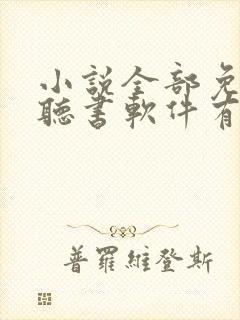 小說全部免
聽書軟件有
普羅維登斯